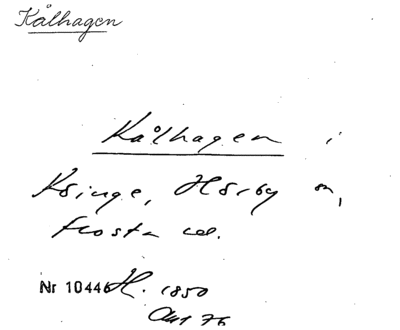 Kålhagen
Kålhagen i
Ksinge, Hörby sn,
Frosta hd.
Nr 10446 H. 1850
76